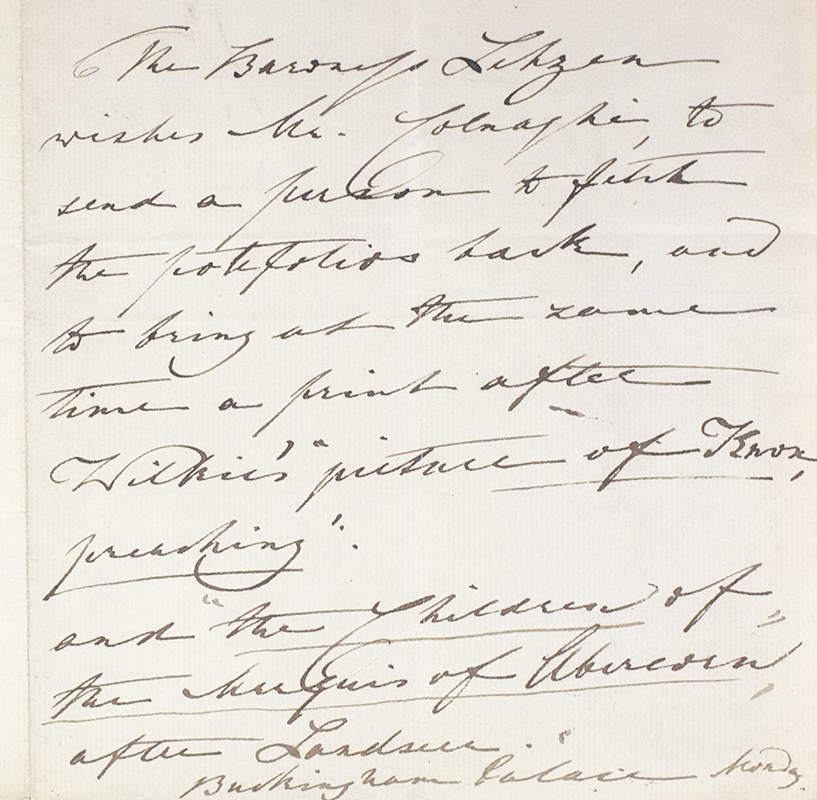 The Baroness Lehzen
wishes Mr. Colnaghi, to
send a person to fetch
the potefolios back, and
to bring at the same
time a print after
Wilkie's "picture of Knox,
preaching".
and "the Children of
the Marquis of Abercorn"
after Landseer.
Buckingham Palace Monday.